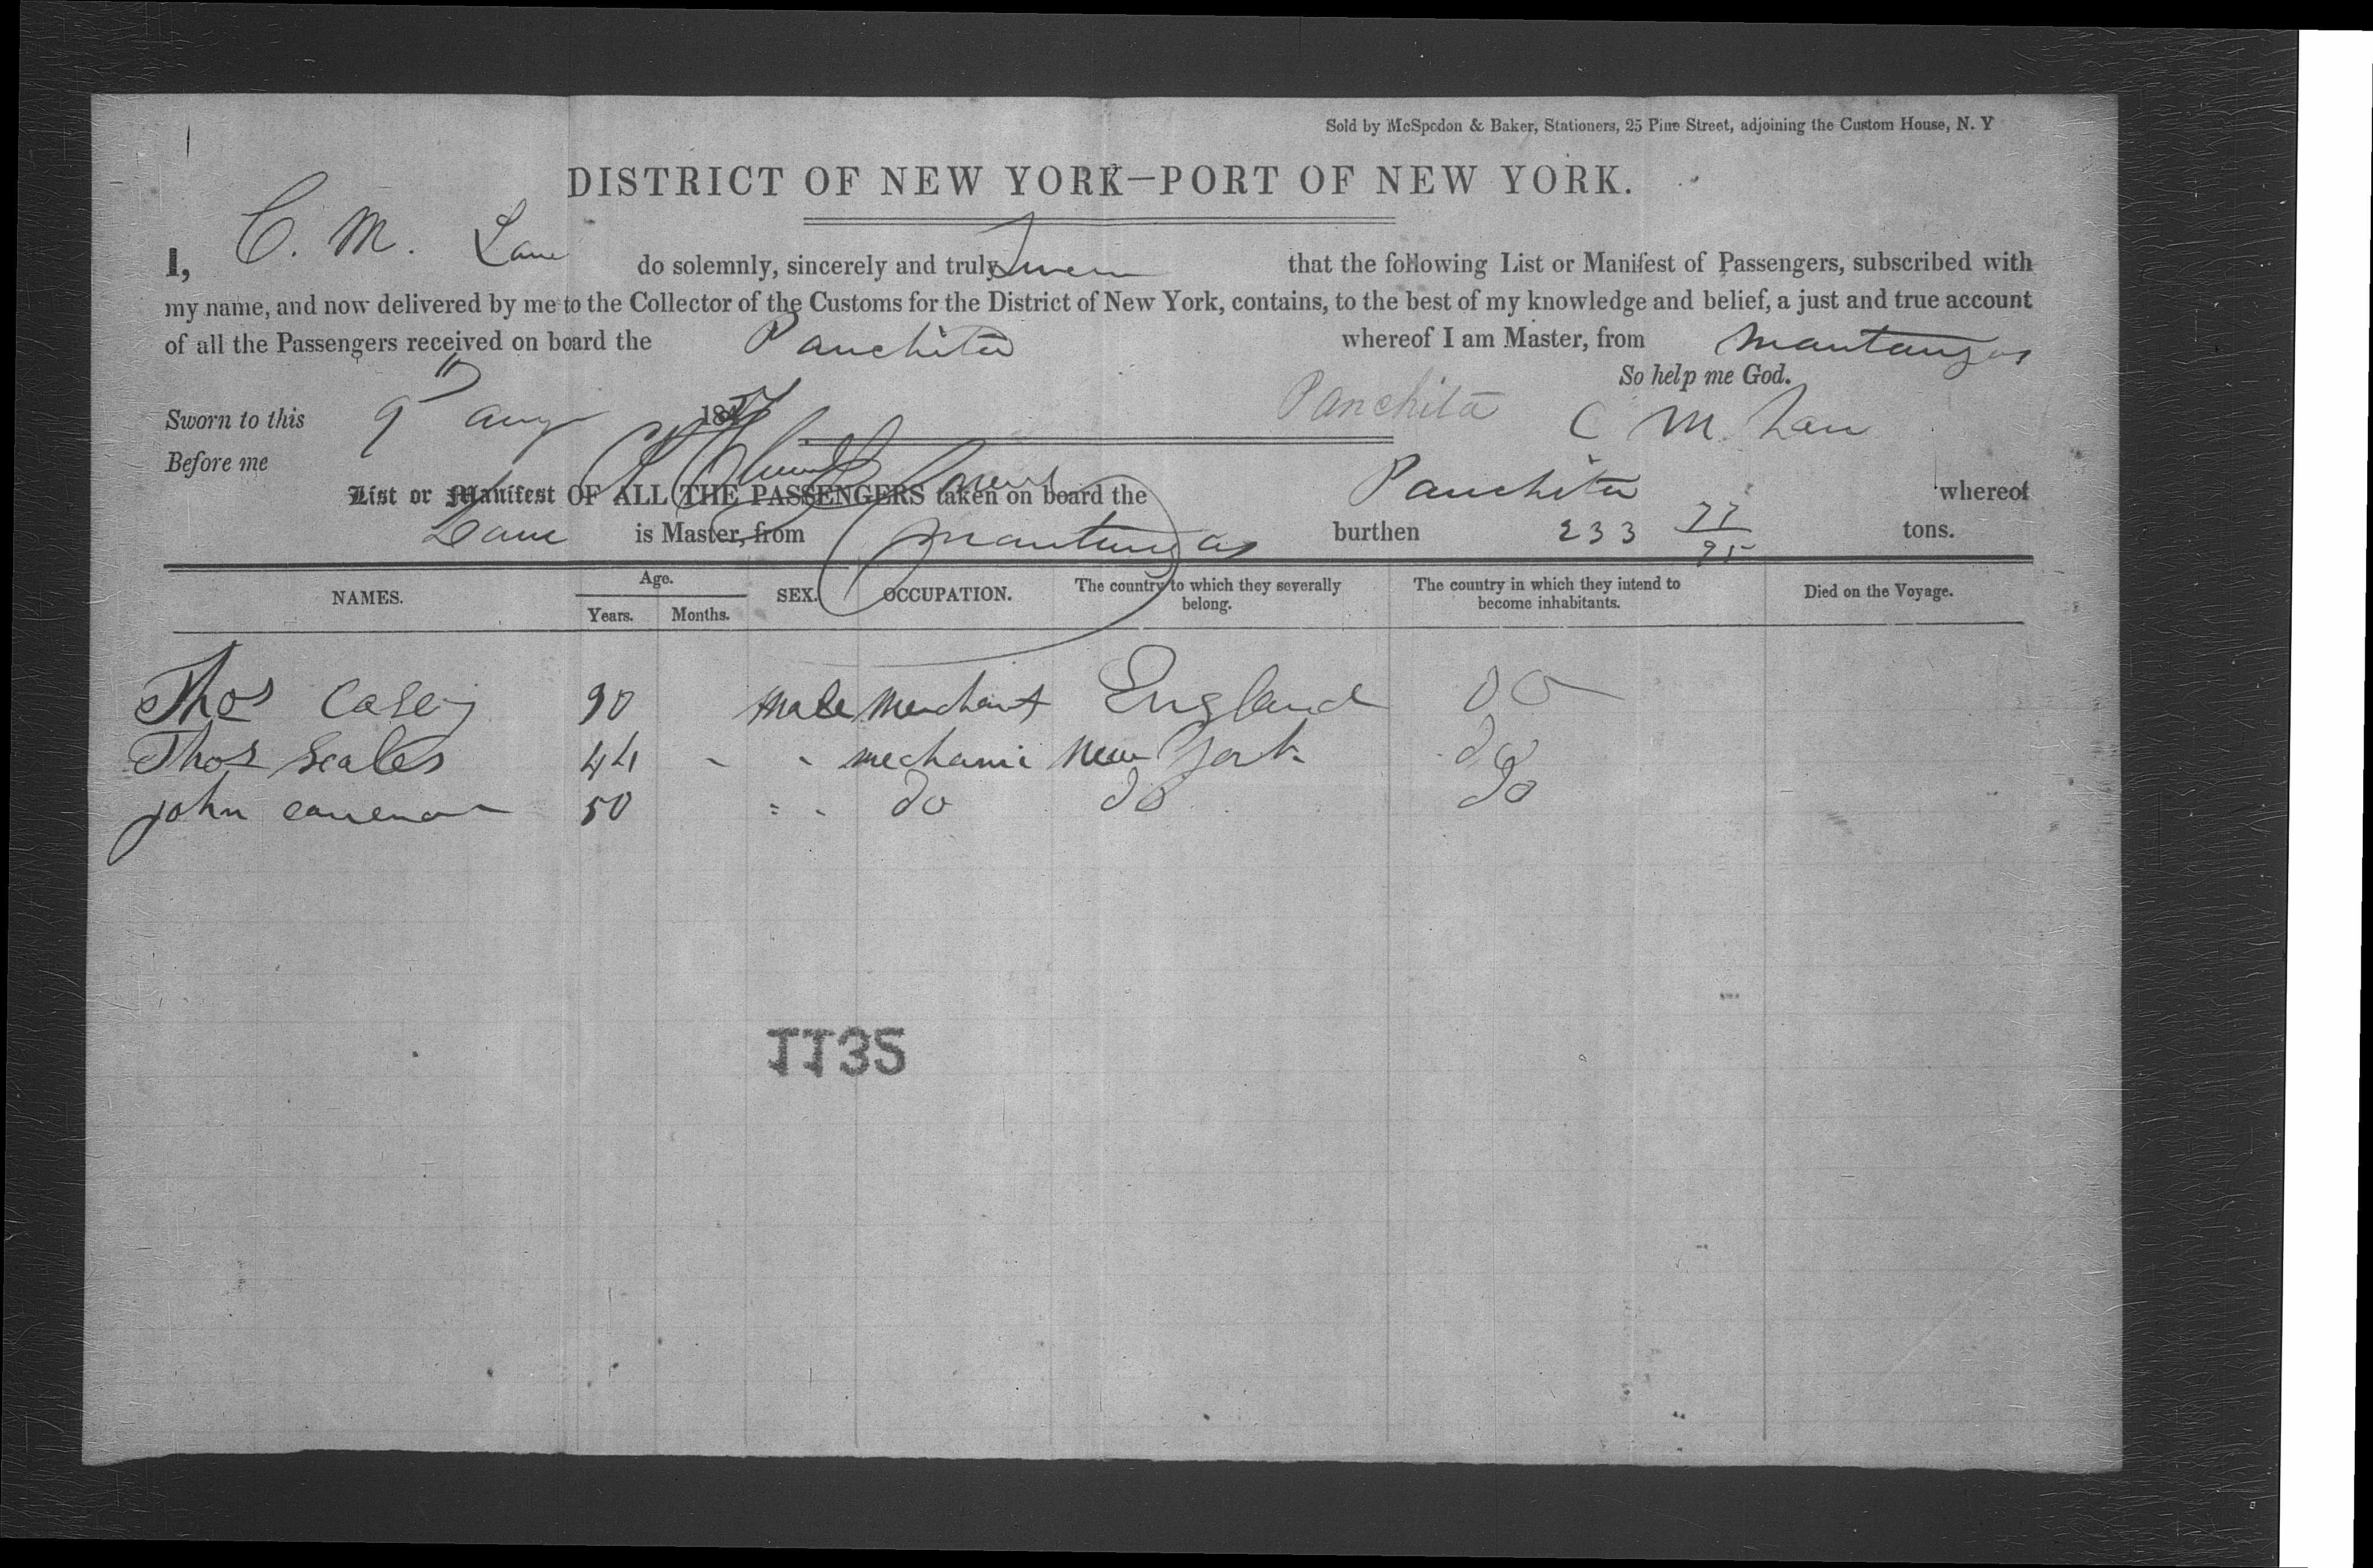 Sold by McSpedon & Baker, Stationers, 25 Pine Street, adjoining the Custom House, N. Y
DISTRICT OF NEW YORK—PORT OF NEW YORK.
I, C. M. Lane do solemnly, sincerely and truly Swear that the following List or Manifest of Passengers, subscribed with
my name, and now delivered by me to the Collector of the Customs for the District of New York, contains, to the best of my knowledge and belief, a just and true account
of all the Passengers received on board the Panchita whereof I am Master, from Mantanzas
So help me God.
Sworn to this 9th aug 185 Panchita C M Lane
Before me
List or Manifest OF ALL THE PASSENGERS taken on board the Panchita whereof
Lane is Master, from Mantanzas burthen 233 77/95 tons.
NAMES. Age. Years. Months. SEX. OCCUPATION. The country to which they severally belong. The country in which they intend to become inhabitants. Died on the Voyage.
Thos Casey 30 male Merchant England Do
Thos Scales 44 " " mechanic New York do
john 50 " " do do do
1135